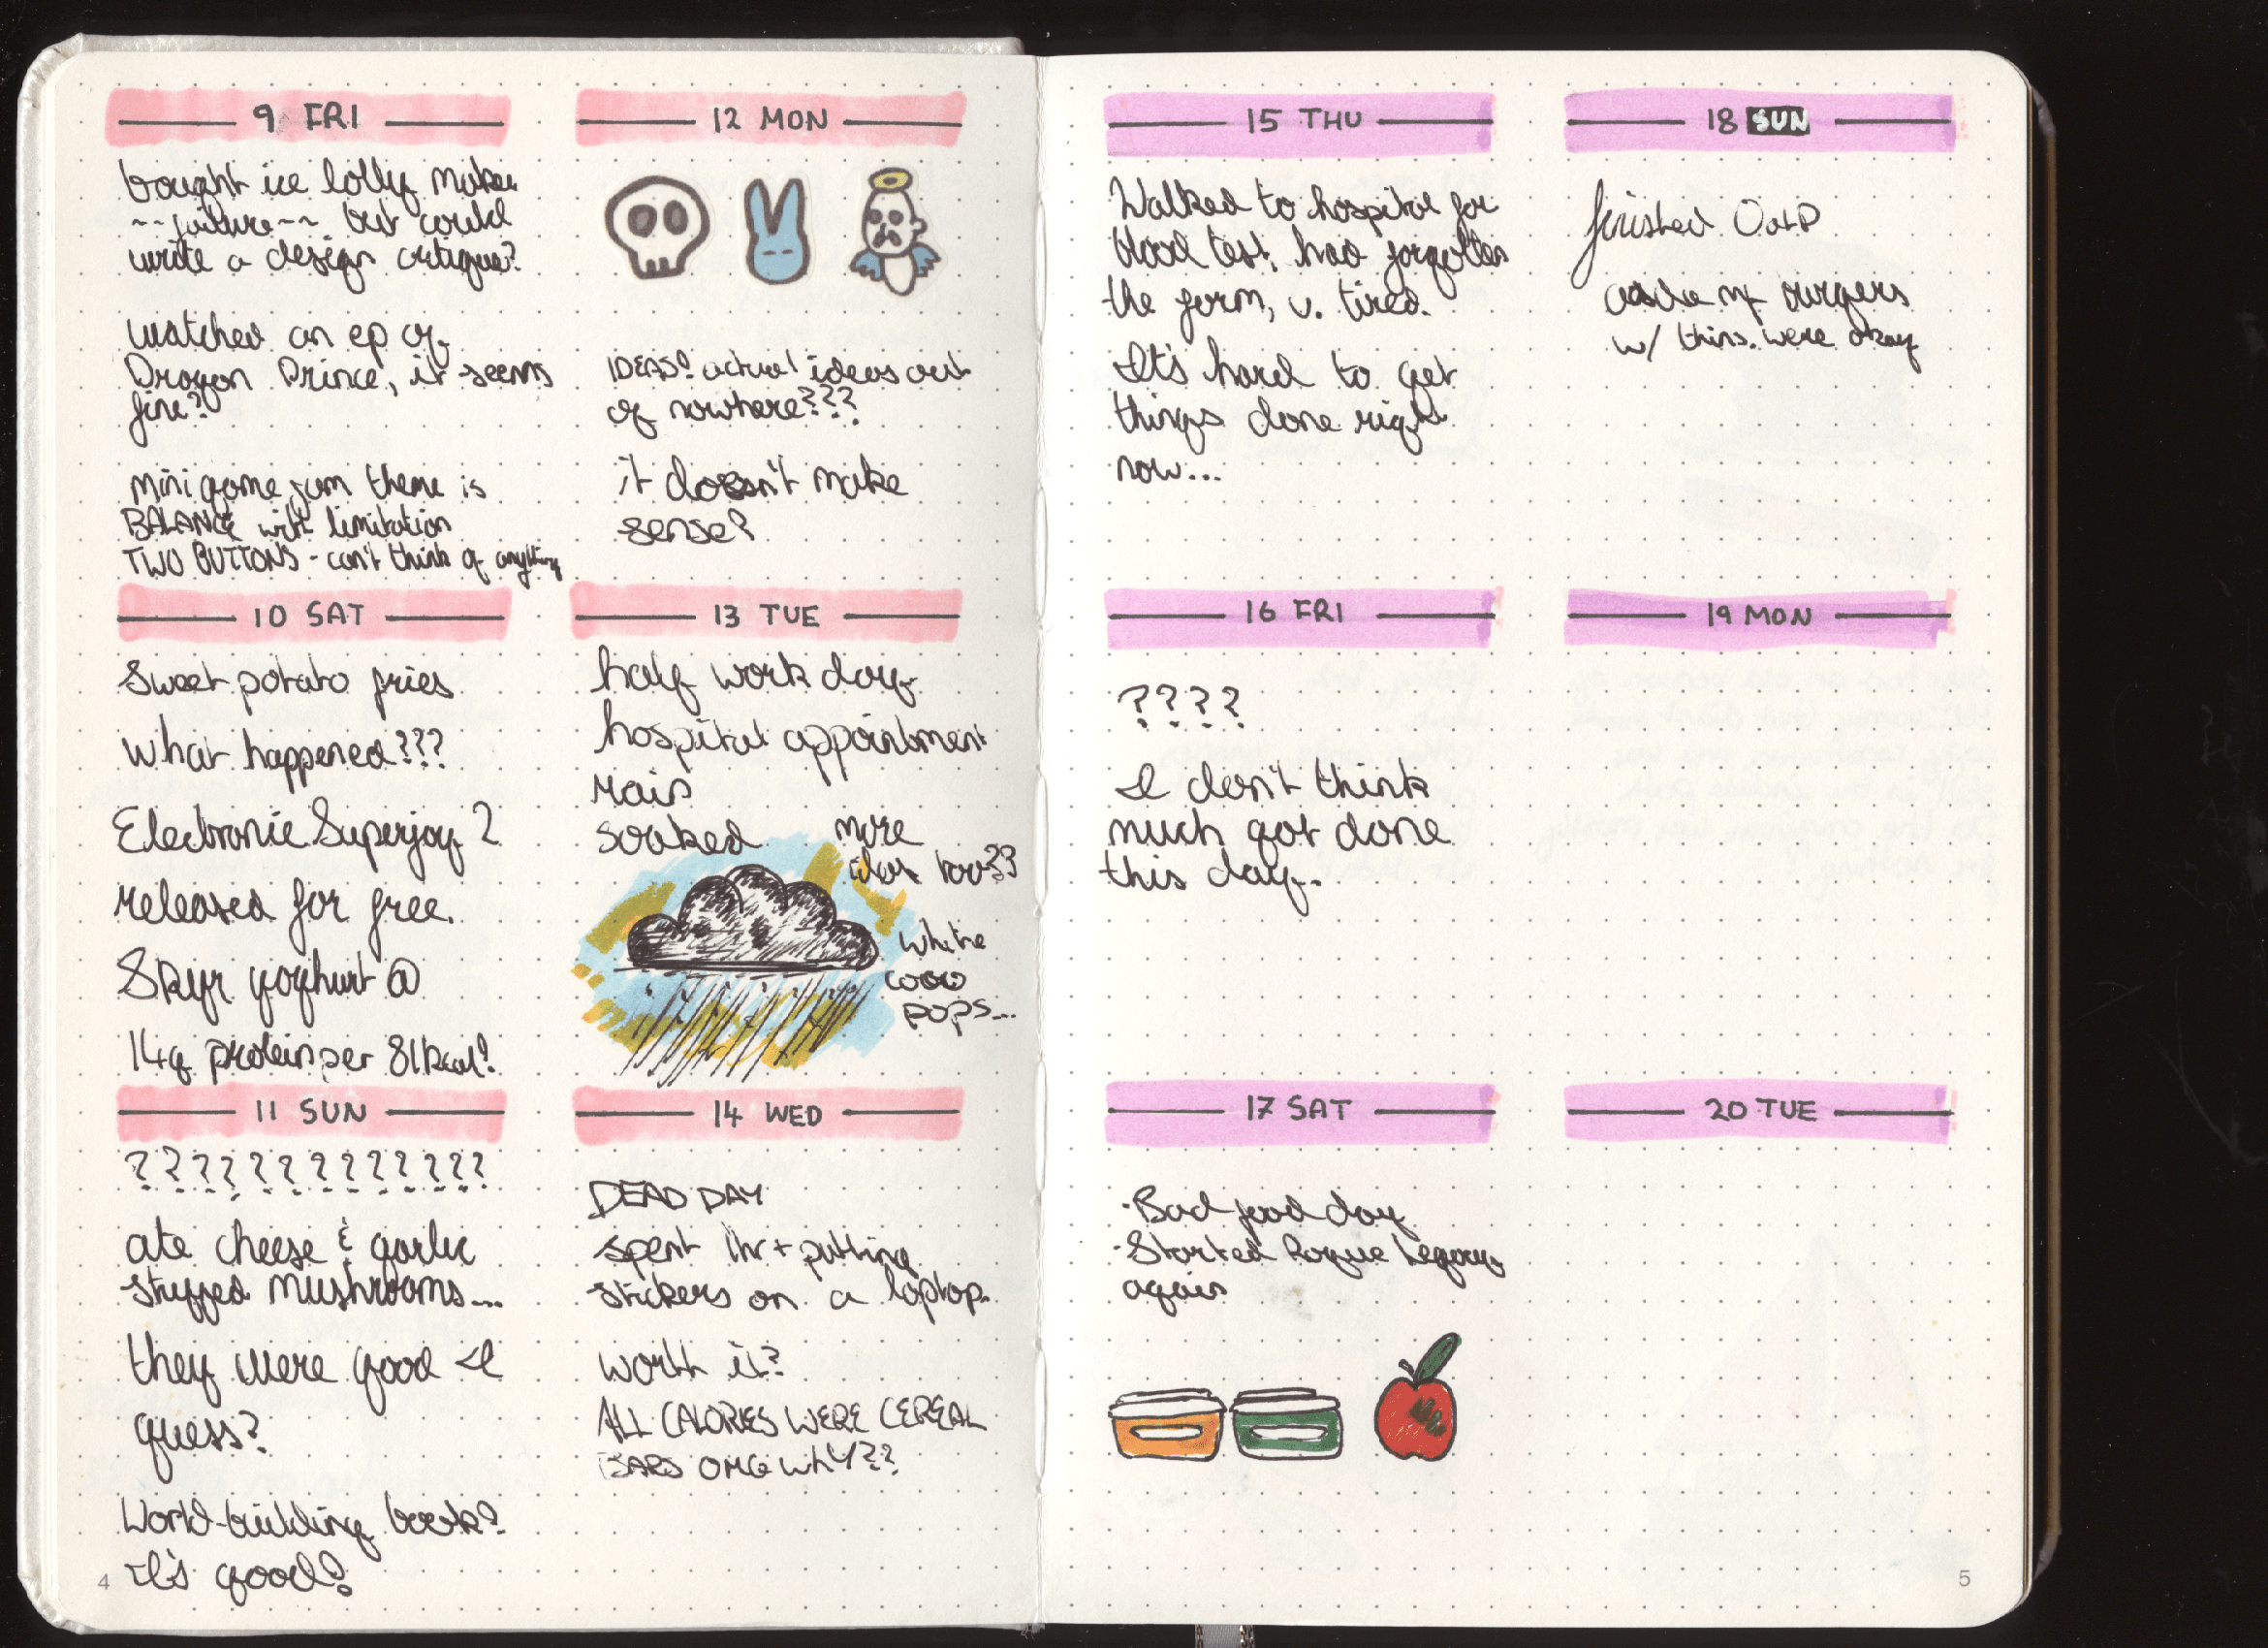 9 FRI
bought ice lolly maker
~~failure~~ but could
write a design critique?
watched an ep of
Dragon Prince, it seems
fine?
mini game jam theme is
BALANCE with limitation
TWO BUTTONS - can't think of anything
10 SAT
Sweet potato fries
what happened???
Electronic Superjoy 2
released for free.
Skyr yoghurt @
14g protein per 81kcal!
11 SUN
? ? ? ? ? ? ? ? ? ? ? ?
ate cheese & garlic
stuffed mushrooms...
they were good I
guess?
World-building book?
It's good?
4
12 MON
IDEAS? actual ideas out
of nowhere???
it doesn't make
sense?
13 TUE
half work day
hospital appointment
rain
soaked
more
ideas too??
white
coco
pops...
14 WED
DEAD DAY
spent 1hr+ putting
stickers on a laptop.
Worth it?
ALL CALORIES WERE CEREAL
BARS OMG WHY??
15 THU
Walked to hospital for
blood test, had forgotten
the form, v. tired.
It's hard to get
things done right
now...
16 FRI
? ? ? ?
I don't think
much got done
this day.
17 SAT
·Bad food day
·Started Rogue Legacy
again
18 SUN
finished
burgers
w/ thins. were okay
19 MON
20 TUE
5